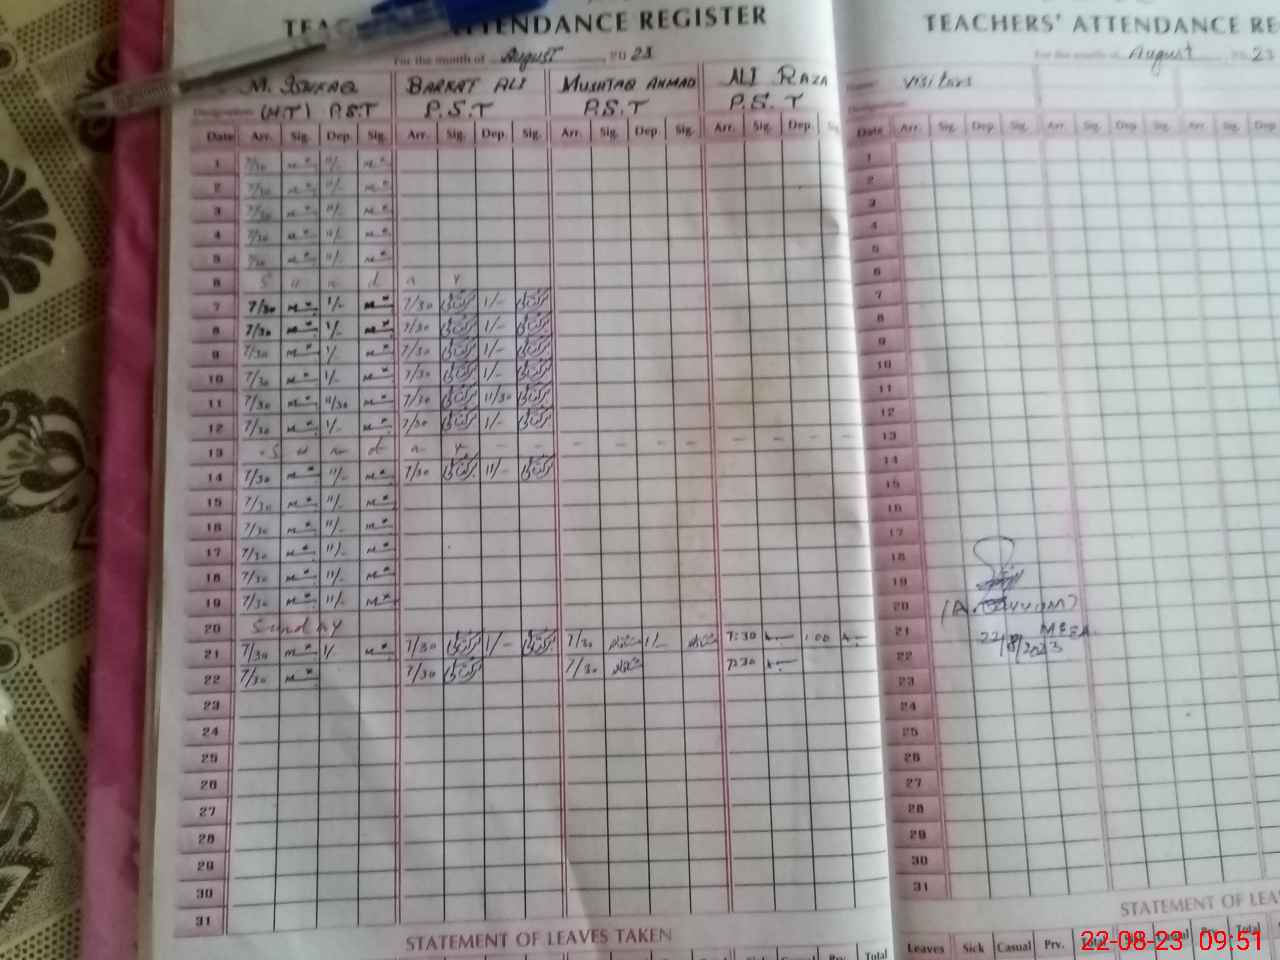 TEACHERS' ATTENDANCE REGISTER
For the month of August 2023
M. Ishfaq BARKAT ALI MUSHTAQ AHMAD ALI RAZA
Designation (H.T) P.S.T P.S.T P.S.T P.S.T
Date Arr. Sig. Dep. Sig. Arr. Sig. Dep. Sig. Arr. Sig. Dep. Sig. Arr. Sig. Dep. Sig.
1 7/30 11/-
2 7/30 11/-
3 7/30 11/-
4 7/30 11/-
5 7/30 11/-
6 Sunday
7 7/30 1/- 7/30 1/-
8 7/30 1/- 7/30 1/-
9 7/30 1/- 7/30 1/-
10 7/30 1/- 7/30 1/-
11 7/30 11/30 7/30 11/30
12 7/30 1/- 7/30 1/-
13 Sunday - - - - - - - - -
14 7/30 11/- 7/30 11/-
15 7/30 11/-
16 7/30 11/-
17 7/30 11/-
18 7/30 11/-
19 7/30 11/-
20 Sunday
21 7/30 1/- 7/30 1/- 7/30 1/- 7:30 1:00
22 7/30 7/30 7/30 7:30
23
24
25
26
27
28
29
30
31
STATEMENT OF LEAVES TAKEN
TEACHERS' ATTENDANCE RE
For the month of August 2023
visitors
Designation
Date Arr. Sig. Dep. Sig. Arr. Sig. Dep. Sig. Arr. Sig. Dep.
1
2
3
4
5
6
7
8
9
10
11
12
13
14
15
16
17
18
19
20
21
22
23
24
25
26
27
28
29
30
31
(A. Qayyum)
MEEA
22/8/2023
STATEMENT OF LEA
Leaves Sick Casual Prv. Total Sick Casual Prv. Total
22-08-23 09:51